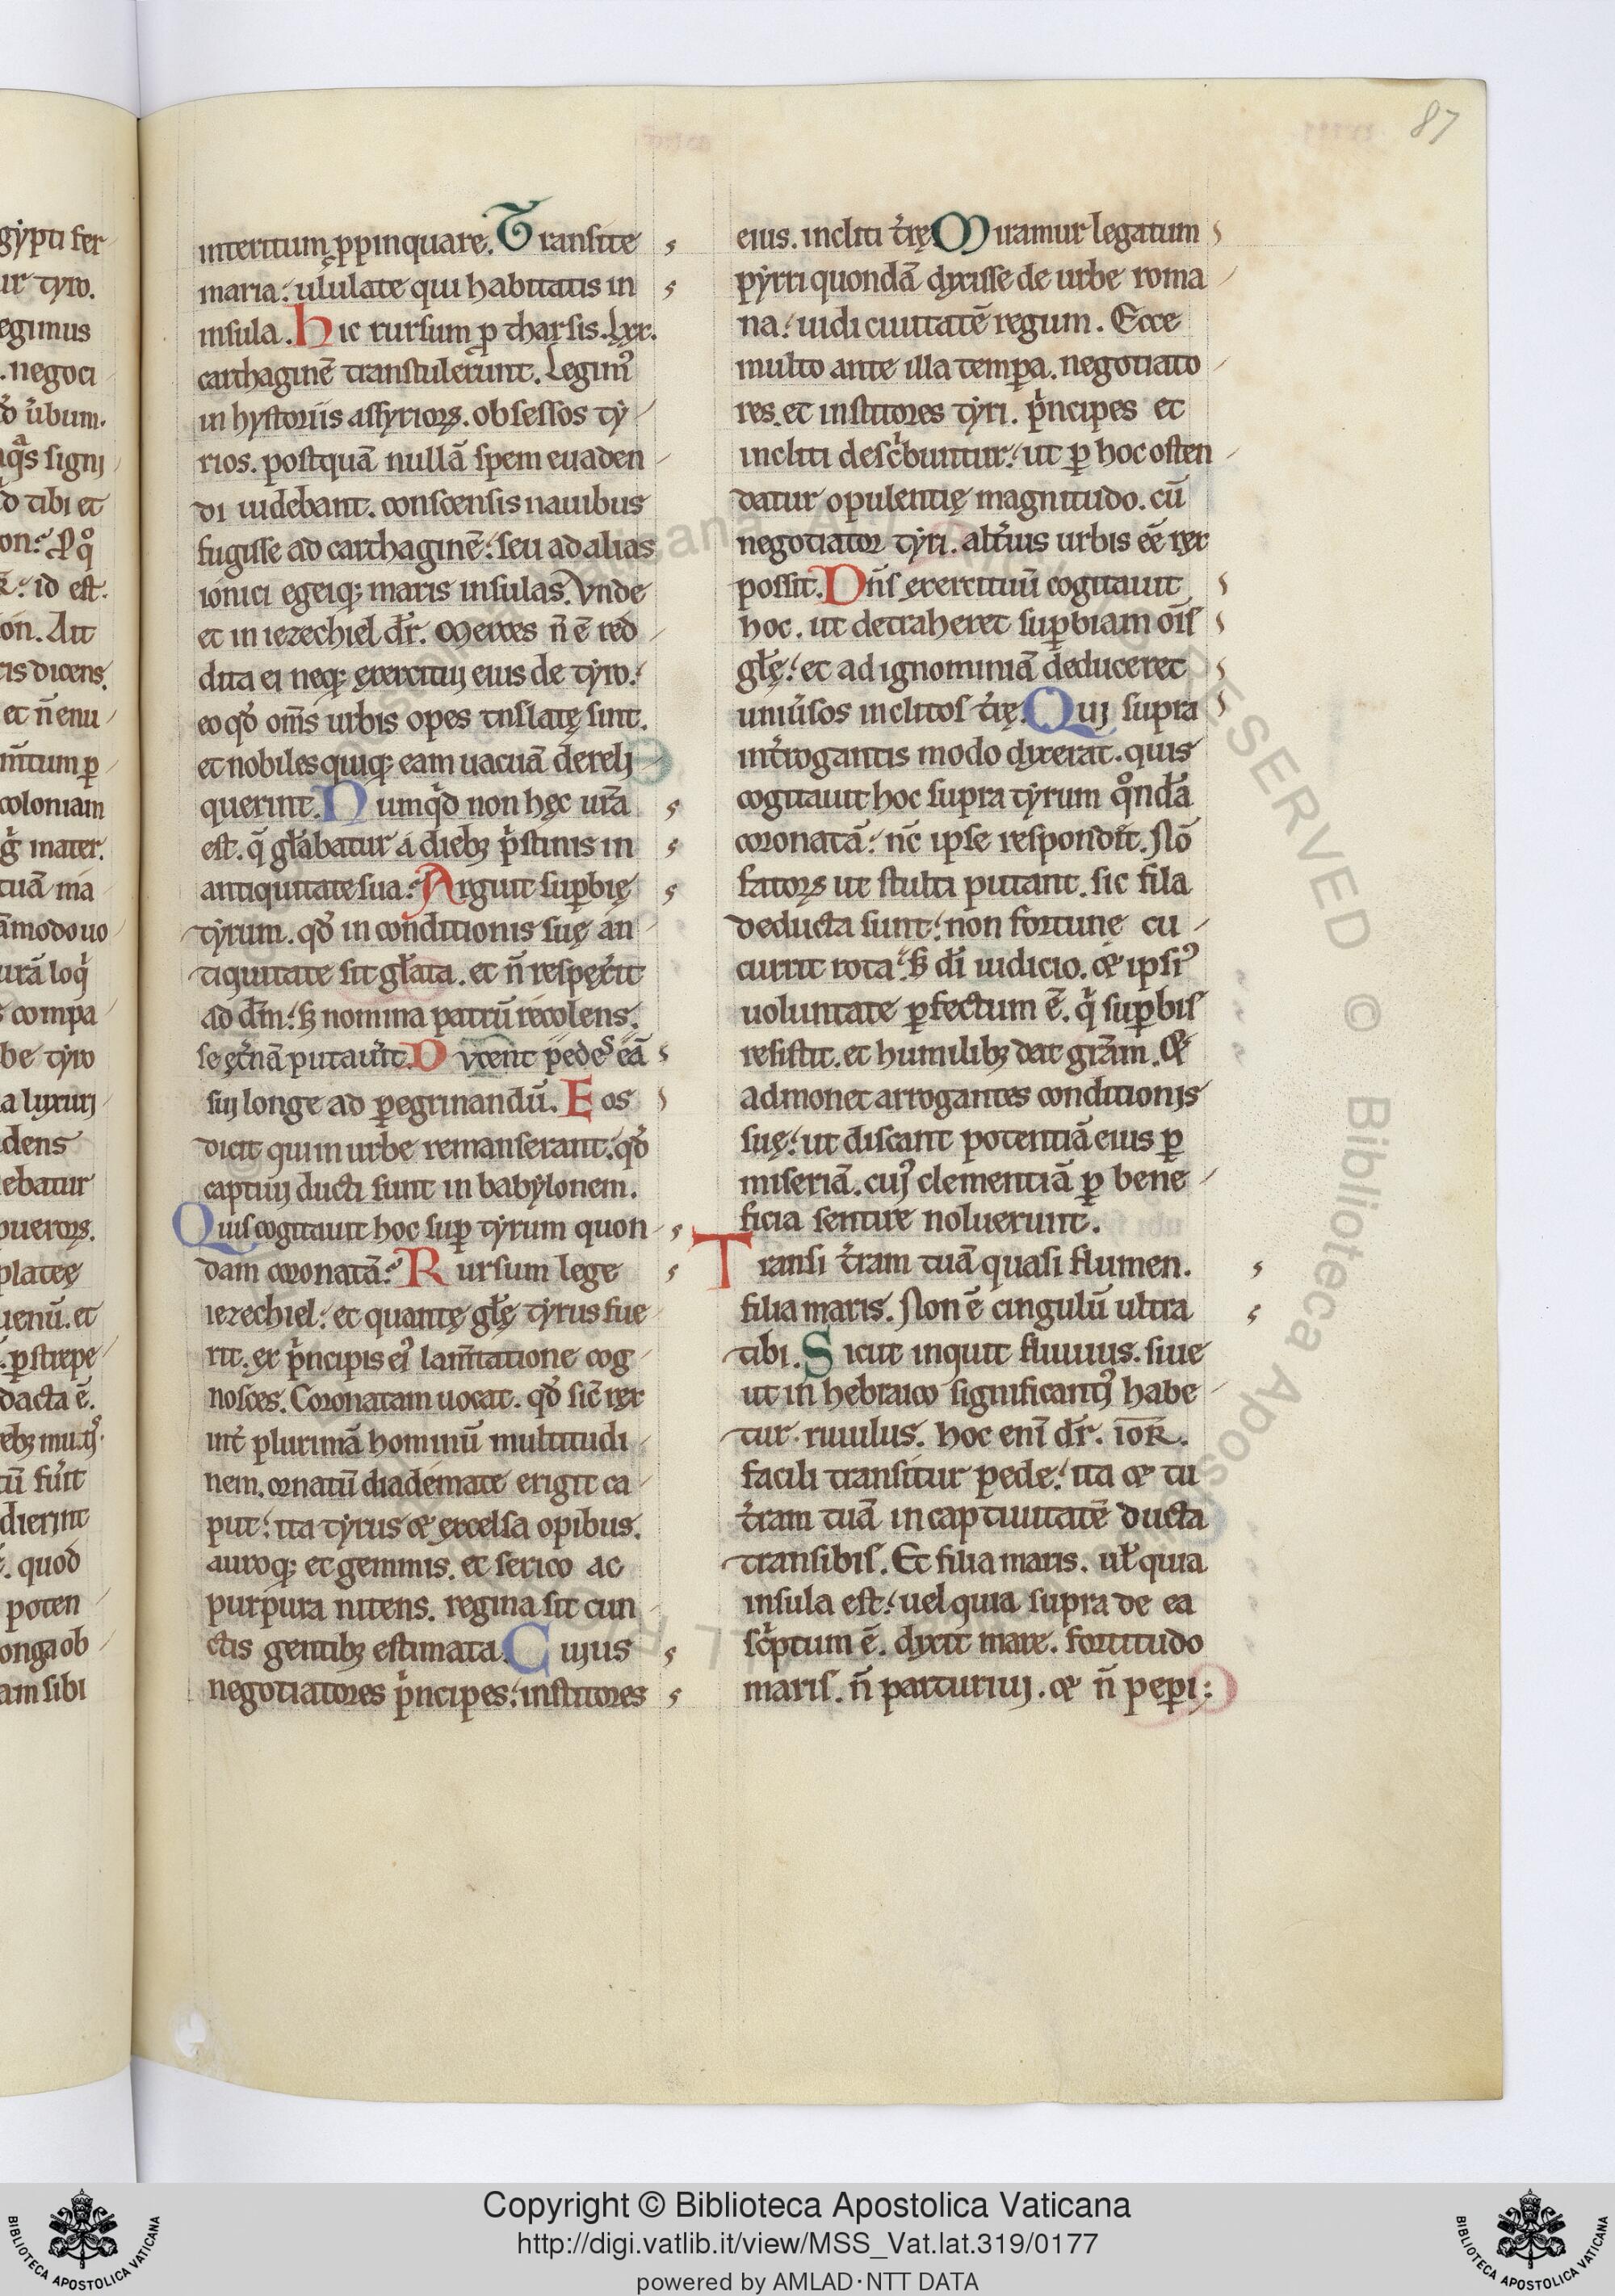 87
interitum ꝓpinquare. Transite
maria: ululate qui habitatis in
insula. Hic rursum ꝑ tharsis. lxx.
carthaginē transtulerunt. Legimꝰ
in hystoriis assyrioꝝ. obsessos ty
rios. postquā nullā spem euaden
di uidebant. conscensis nauibus
fugisse ad carthaginē: seu ad alias
ionici egeiqꝫ maris insulas. Vnde
et in iezechiel dr̄. Merces n̄ ē red
dita ei neqꝫ exercitui eius de tyro.
eo qđ om̄s urbis opes tnslatę sint.
et nobiles quiqꝫ eam uacuā dereli
querint. Numqd non hęc ur̄a
est. q̄ gl̄abatur a diebꝫ pristinis in
antiquitate sua: Arguit suꝑbię
tyrum. qđ in conditionis suę an
tiquitate sit gl̄ata. et n̄ respexerit
ad dm̄: sꝫ nomina patrū recolens.
se ęt̄nā putau̇it. Dvcent pedes eā
sui longe ad ꝑegrinandū. Eos
dicit qui in urbe remanserant. qđ
captiui ducti sunt in babylonem.
Quis cogitauit hoc suꝑ tyrum quon
dam coronatā: Rursum lege
iezechiel: et quantę gl̄ę tyrus fue
rit. ex pⁱncipis eiꝰ lam̄tatione cog
nosces. Coronatam uocat. qđ sic̄ rex
int̄ plurimā hominū multitudi
nem. ornatū diademate erigit ca
put: ita tyrus & excelsa opibus.
auroqꝫ et gemmis. et serico ac
purpura nitens. regina sit cun
ctis gentibꝫ estimata. Cuius
negotiatores pⁱncipes: institores
eius. incliti t̄rę. Miramur legatum
pyrri quondā dyxisse de urbe roma
na: uidi ciuitatē regum. Ecce
multo ante illa temꝑa. negotiato
res. et institores tyri. pⁱncipes et
incliti descⁱbuntur: ut ꝑ hoc osten
datur opulentię magnitudo. cū
negotiator tyri. alt̄ius urbis eē rex
possit. Dn̄s exercituū cogitauit
hoc. ut detraheret suꝑbiam oīs
gl̄ę: et ad ignominiā deduceret
uniu̇sos inclitos t̄rę. Qui supra
int̄rogantis modo dyxerat. quis
cogitauit hoc supra tyrum qͦndā
coronatā: nc̄ ipse respondit. Nō
fatoꝝ ut stulti putant. sic fila
deducta sunt: non fortune cu
currit rota: sꝫ dī iudicio. & ipsiꝰ
uoluntate ꝑfectum ē. qⁱ suꝑbis
resistit. et humilibꝫ dat gr̄am. &
admonet arrogantes conditionis
suę: ut discant potentiā eius ꝑ
miseriā. cuiꝰ clementiā ꝑ bene
ficia sentire noluerunt.
Transi t̄ram tuā quasi flumen.
filia maris. Non ē cingulū ultra
tibi. Sicut inquit fluuius. siue
ut in hebraico significantiꝰ habe
tur. riuulus. hoc enī dr̄. ioR.
facili transitur pede: ita & tu
t̄ram tuā in captiuitatē ducta
transibis. Et filia maris. ul̄ quia
insula est: uel quia supra de ea
scⁱptum ē. dyxit mare. fortitudo
maris. n̄ parturiui. & n̄ peꝑi:
Copyright © Biblioteca Apostolica Vaticana
http://digi.vatlib.it/view/MSS_Vat.lat.319/0177
powered by AMLAD·NTT DATA
BIBLIOTECA APOSTOLICA VATICANA
BIBLIOTECA APOSTOLICA VATICANA